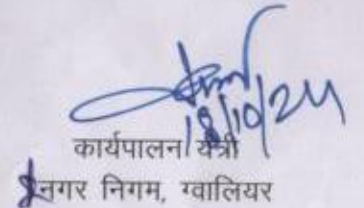 18/10/24
कार्यपालन यंत्री
नगर निगम, ग्वालियर